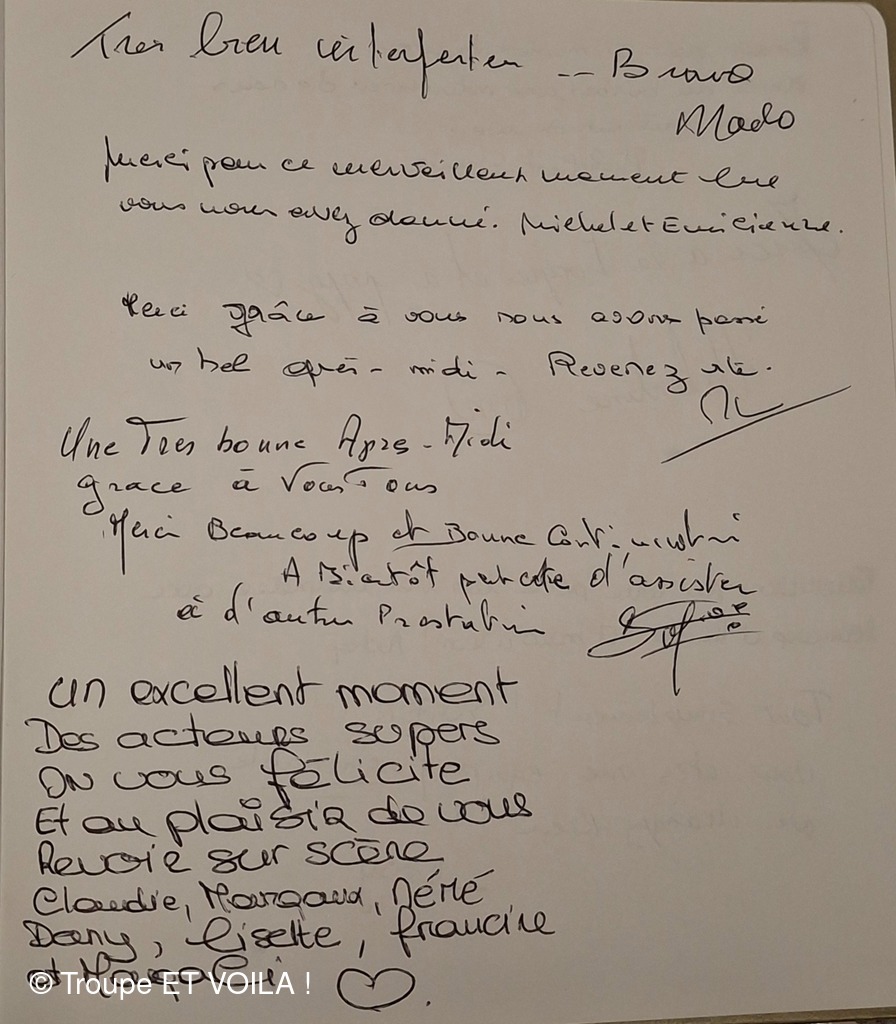 Tres bien interpreter -- Bravo
Mado
Merci pour ce merveilleux moment que
vous nous avez donné. Michel et Emilienne.
Merci grâce à vous nous avons passé
un bel après-midi - Revenez vite.
Une Tres bonne Apres-Midi
grace à Vous Tous
Merci Beaucoup et Bonne Continuation
A Bientôt peut etre d'assister
à d'autres Prestations
un excellent moment
Des acteurs supers
On vous félicite
Et au plaisir de vous
Revoir sur scène
Claudie, Margaux, Mémé
Dany, Lisette, Francine
et Magali
© Troupe ET VOILA !